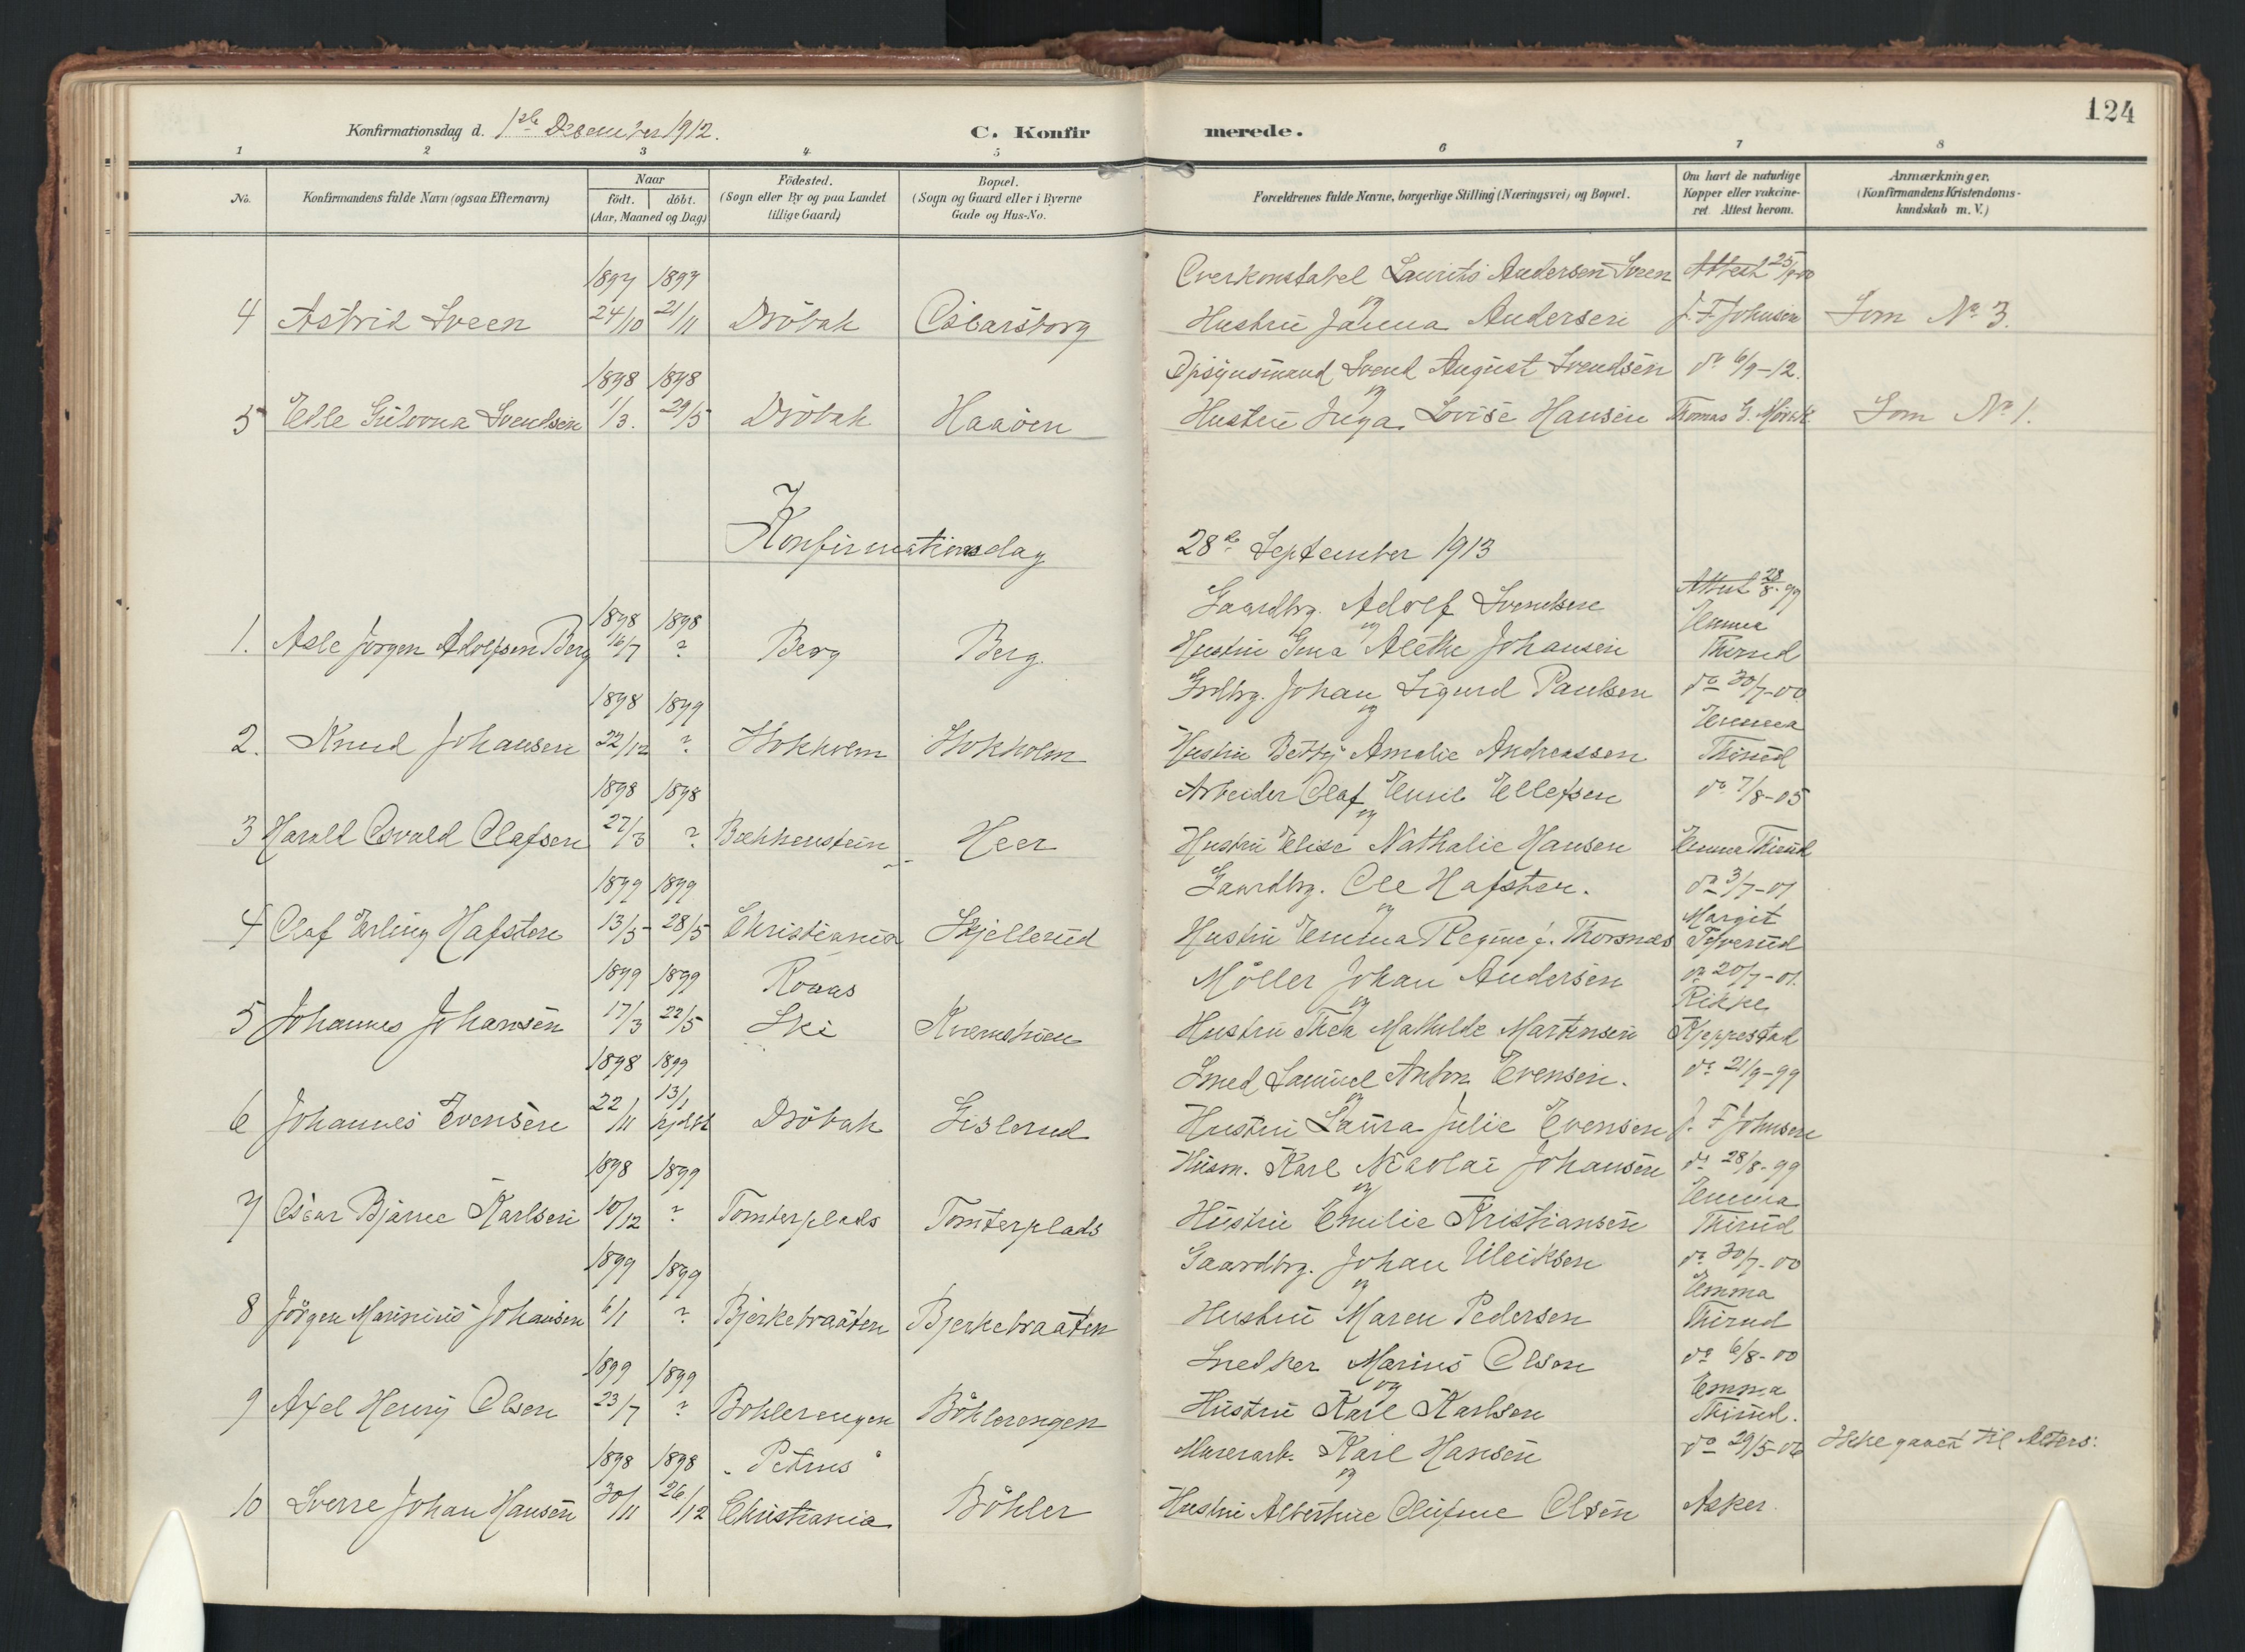 124
Konfirmationsdag d. 1ste Desember 1912.
C. Konfirmerede.
1 2 3 4 5 6 7 8
No.
Konfirmandens fulde Navn (ogsaa Efternavn)
Naar
födt. döbt.
(Aar, Maaned og Dag)
Födested.
(Sogn eller By og paa Landet
tillige Gaard)
Bopæl.
(Sogn og Gaard eller i Byerne
Gade og Hus-No.
Forældrenes fulde Navne, borgerlige Stilling (Næringsvei) og Bopæl.
Om havt de naturlige
Kopper eller vakcine-
ret. Attest herom.
Anmærkninger.
(Konfirmandens Kristendoms-
kundskab m. V.)
1897 1897 Overkonstabel Laurits Andersen Sveen Attest 25/9-00
4 Astrid Sveen 24/10 21/11 Dröbak Oscarsborg og Hustru Janna Andersen J. F. Johnsen Som No 3.
1898 1898 Opsynsmand Svend August Svendsen do 6/9-12.
5 Edle Svendsen 1/3. 29/5 Dröbak Haaöen og Hustru Inga Lovise Hansen Thomas G. Som No 1.
Konfirmationsdag 28de September 1913
1898 1898 Gaardbrg. Adolf Svendsen Attest 28/8-99
1. Asle Jörgen Adolfsen Berg 16/7 ? Berg Berg. og Hustru Gina Alethe Johansen Emma Thirud
1898 1899 Grdbrg. Johan Sigurd Paulsen do 30/7-00
2. Knud Johansen 22/12 ? Stokholm Stokholm og Hustru Betty Amalie Andreassen Emma Thirud
1898 1898 Arbeider Olaf Emil Ellefsen do 7/8-05
3 Harald Osvald Olafsen 27/3 ? Bækkensteen Heer og Hustru Elise Nathalie Hansen Emma Thirud
1899 1899 Gaardbrg. Ole Hafsten. do 3/7-01
4 Olaf Erling Hafsten 13/5 28/5 Christiania Skjellerud og Hustru Emma Regine f. Thorsnæs Margit Tofverud
1899 1899 Roaas Möller Johan Andersen do 20/7-01.
5 Johannes Johansen 17/3 22/5 Ski Kvernstuen og Hustru Thea Mathilde Martinsen Rikke Kjeppestad
1898 1899 Smed Samuel Anton Evensen. do 21/9-99
6 Johannes Evensen 22/11 13/1 hjdbt Dröbak Gislerud og Hustru Laura Julie Evensen J. F Johnsen
1898 1899 Husm. Karl Nicolai Johansen do 28/8-99
7 Oscar Bjarne Karlsen 10/12 ? Tomterplads Tomterplads og Hustru Emilie Kristiansen Emma Thirud
1899 1899 Gaardbrg. Johan Ulriksen do 30/7-00
8 Jörgen Marinius Johansen 6/1 ? Bjerkebraaten Bjerkebraaten og Hustru Maren Pedersen Emma Thirud
1899 1899 Snedker Marius Olsen do 6/8-00
9 Axel Henry Olsen 23/7 ? Böhlerengen Böhlerengen og Hustru Kaie Karlsen Emma Thirud.
1898 1898 „Petrus“ Murerarb. Karl Hansen do 29/5-06 Ikke gaaet til Alters.
10 Sverre Johan Hansen 30/11 26/12 Christiania Böhler og Hustru Albertine Olufine Olsen Asker.